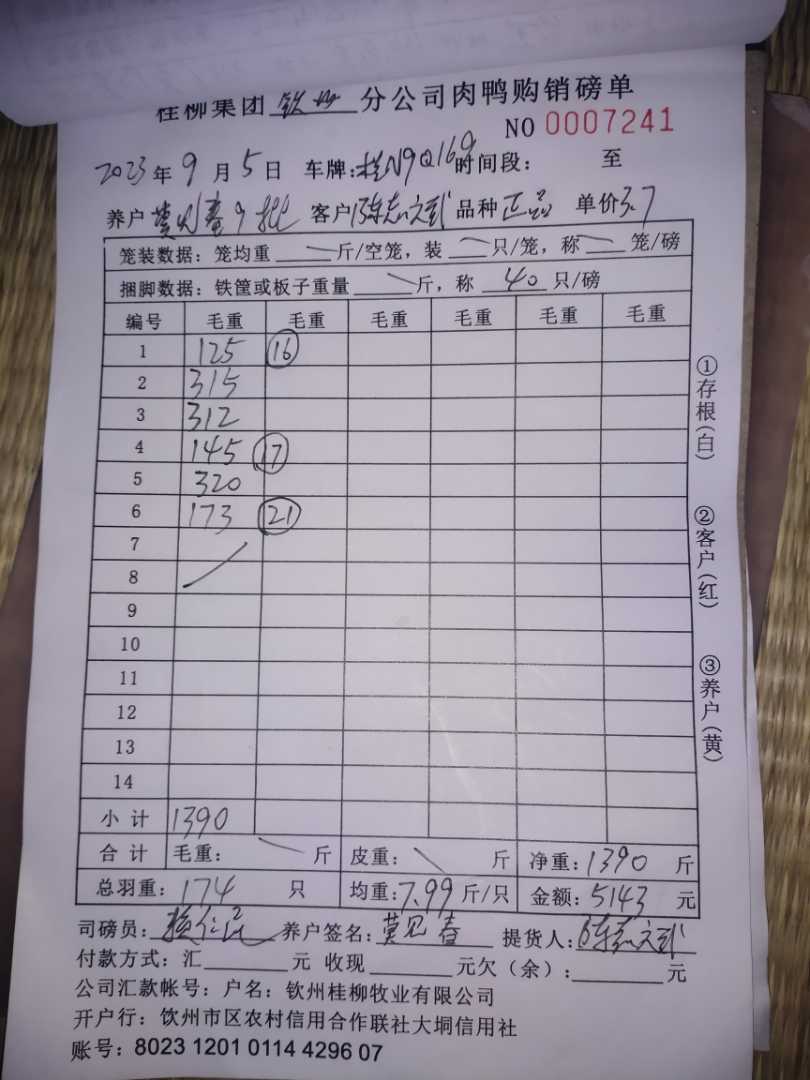 桂柳集团 钦州 分公司肉鸭购销磅单
NO 0007241
2023 年 9 月 5 日 车牌: 桂N9Q169 时间段: 至
养户 9批 客户 陈志文武 品种 正品 单价 3.7
笼装数据: 笼均重 斤/空笼, 装 只/笼, 称 笼/磅
捆脚数据: 铁筐或板子重量 斤, 称 40 只/磅
编号 毛重 毛重 毛重 毛重 毛重 毛重
1 125 16
2 315
3 312
4 145 17
5 320
6 173 21
7
8
9
10
11
12
13
14
小计 1390
合计 毛重: 斤 皮重: 斤 净重: 1390 斤
总羽重: 174 只 均重: 7.99 斤/只 金额: 5143 元
司磅员: 养户签名: 莫见春 提货人:
付款方式: 汇 元 收现 元欠(余): 元
公司汇款帐号: 户名: 钦州桂柳牧业有限公司
开户行: 钦州市区农村信用合作联社大垌信用社
账号: 8023 1201 0114 4296 07
①存根(白)
②客户(红)
③养户(黄)